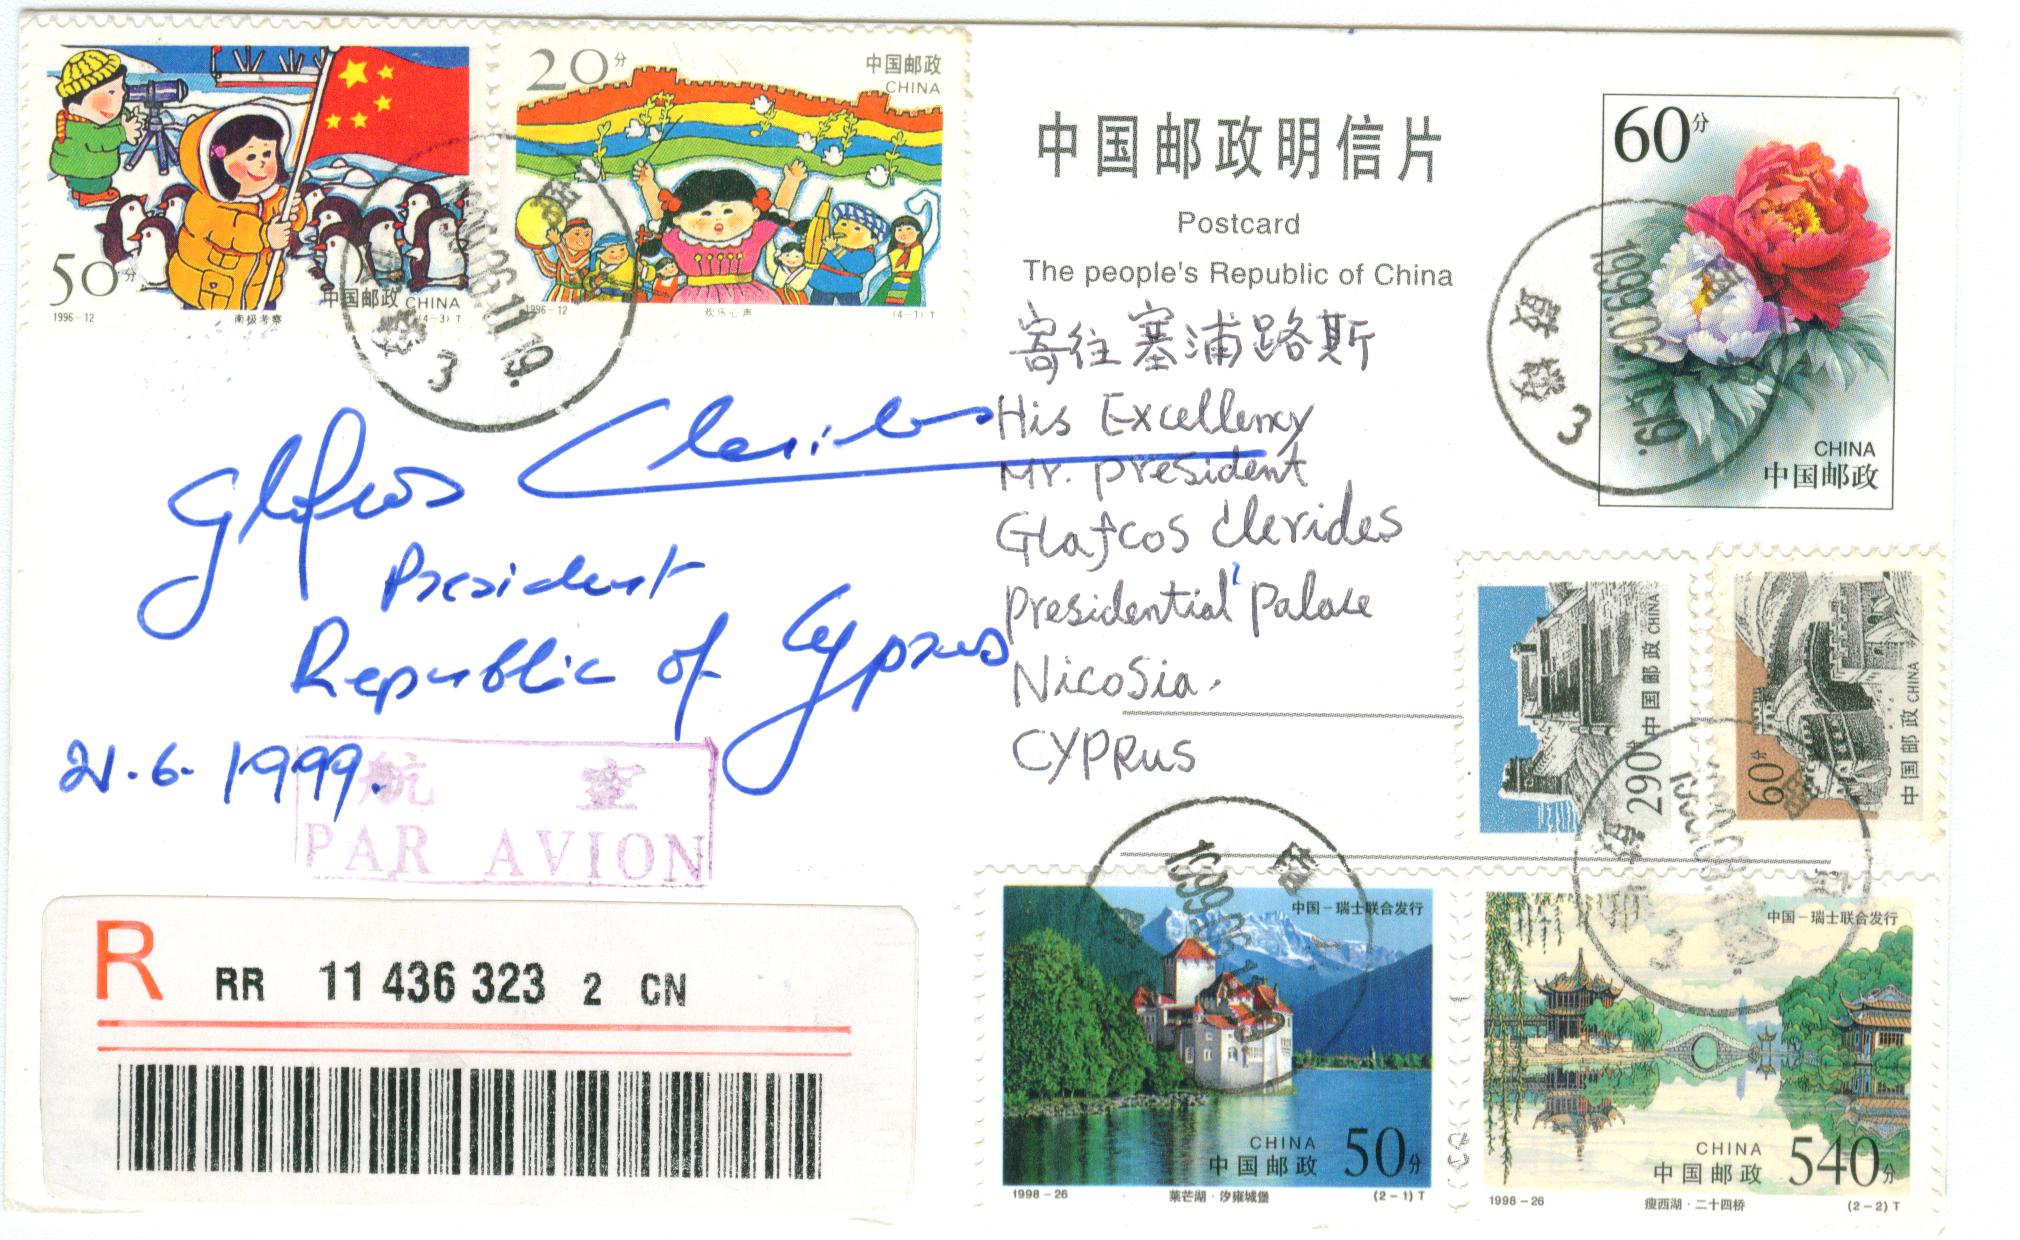 50分
中国邮政 CHINA
1996-12
南极考察
(4-3) T
20分
中国邮政
CHINA
1996-12
欢乐心声
(4-1) T
3
中国邮政明信片
Postcard
The people's Republic of China
60分
CHINA
中国邮政
3
寄往塞浦路斯
His Excellency
Mr. president
Glafcos Clerides
presidential palace
Nicosia.
CYPRUS
Glafcos Clerides
President
Republic of Cyprus
21.6.1999.
航 空
PAR AVION
R
RR 11 436 323 2 CN
290分 中国邮政 CHINA
60分
中国邮政 CHINA
3
中国-瑞士联合发行
CHINA
中国邮政
50分
1998-26
莱芒湖·汐雍城堡
(2-1) T
中国-瑞士联合发行
CHINA
中国邮政
540分
1998-26
瘦西湖·二十四桥
(2-2) T